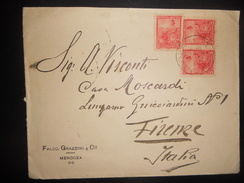 Sig. A. Visconti
Casa Moscardi
Lungarno Guicciardini Nº 1
Firenze
Italia
FALUG. GRAZZINI & Cía
MENDOZA